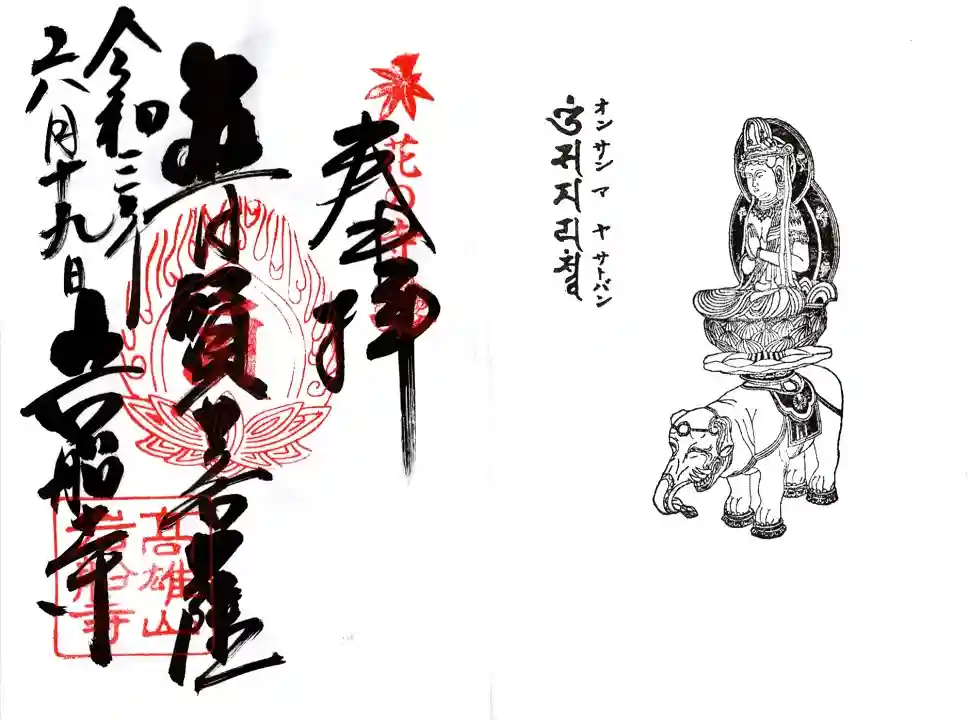 オン サン マ ヤ サトバン
花の寺
奉拝
普賢菩薩
令和三年
六月十九日
岩船寺
高雄山
岩船寺